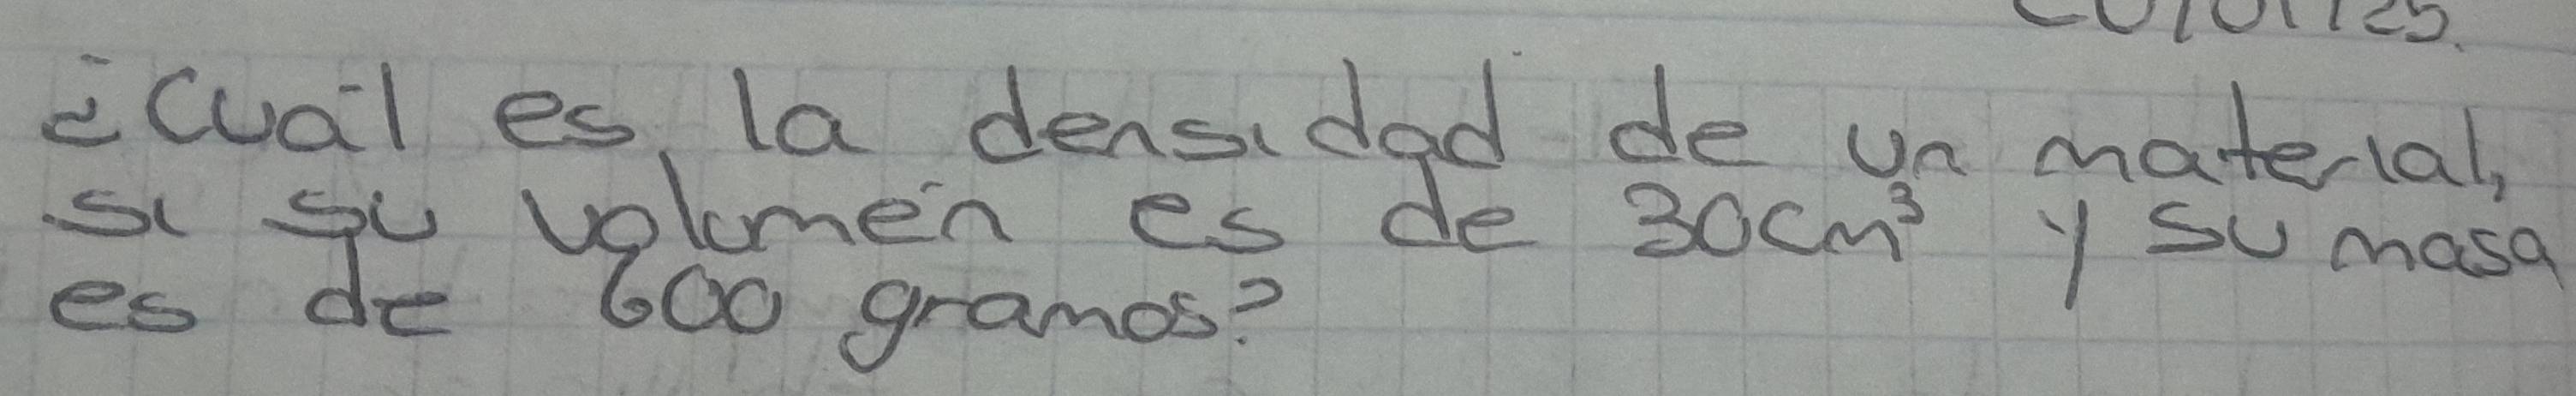 ¿Cuál es la densidad de un material,
si su volumén es de 30cm³ y su masa
es de 600 gramos?